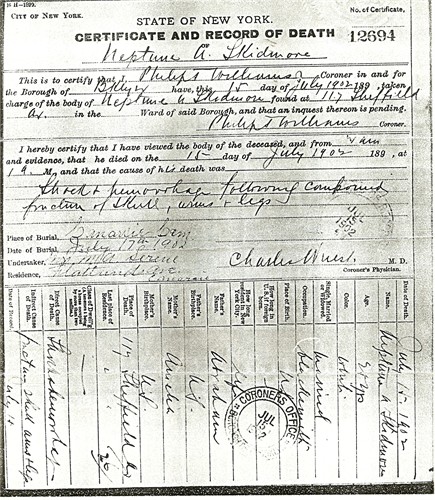 H-1899.
No. of Certificate,
CITY OF NEW YORK.
STATE OF NEW YORK.
CERTIFICATE AND RECORD OF DEATH
12694
OF
Neptune A. Skidmore
This is to certify that I, Philip T Williams Coroner in and for
the Borough of have, this 15 day of July 1902 189 , taken
charge of the body of Neptune A Skidmore found at 117 Sheffield
Av. in the Ward of said Borough, and that an inquest thereon is pending.
Philip T Williams Coroner.
I hereby certify that I have viewed the body of the deceased, and from
and evidence, that he died on the 15 day of July 1902 189 , at
1 M., and that the cause of his death was
Shock & hemorrhage following compound
fracture of Skull, arms & legs
Place of Burial, Canarsie Cem
Date of Burial, July 17th 1902
Undertaker,
Residence, Flatlands
Charles Wuest M. D.
Coroner's Physician.
Date of Death. July 15-1902
Name. Neptune A Skidmore
Age.
Color. White
Single, Married or Widowed. Married
Occupation. Blacksmith
Place of Birth. U.S.
How long in U. S. if foreign born.
How long resident in New York City.
Father's Name. Abraham
Father's Birthplace. U.S.
Mother's Name.
Mother's Birthplace. U.S.
Place of Death. 117 Sheffield Av
Last place of Residence.
Direct Cause of Death. Shock & hemorrhage
Indirect Cause of Death. fracture skull arms & legs
Date of Record. July
CORONERS OFFICE
JUL